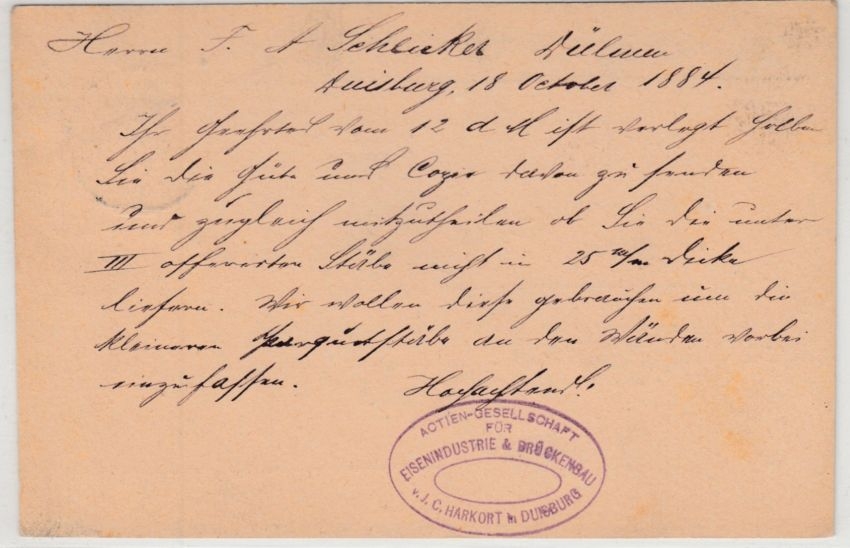 Herrn F. A Schlieker Dülmen
Duisburg, 18 October 1884.
Ihr Geehrtes vom 12 d M ist verlegt Haben
Sie die Güte uns Copie davon zu senden
und zugleich mitzutheilen ob Sie die unter
III offerirten Stäbe nicht in 25 m/m Dicke
liefern. Wir wollen diese gebrauchen um die
kleineren Parquetstäbe an den Wänden vorbei
einzufassen. Hochachtend!
ACTIEN-GESELLSCHAFT
FÜR
EISENINDUSTRIE & BRÜCKENBAU
v. J. C. HARKORT in DUISBURG